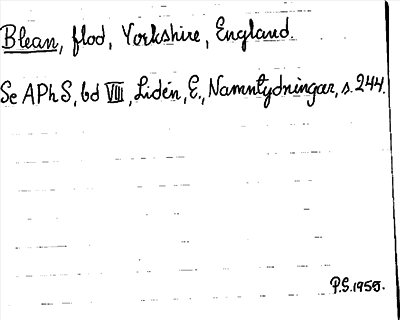 Blean, flod, Yorkshire, England.
Se APhS, bd VIII, Lidén, E., Namntydningar, s. 244.
P.S. 1950.